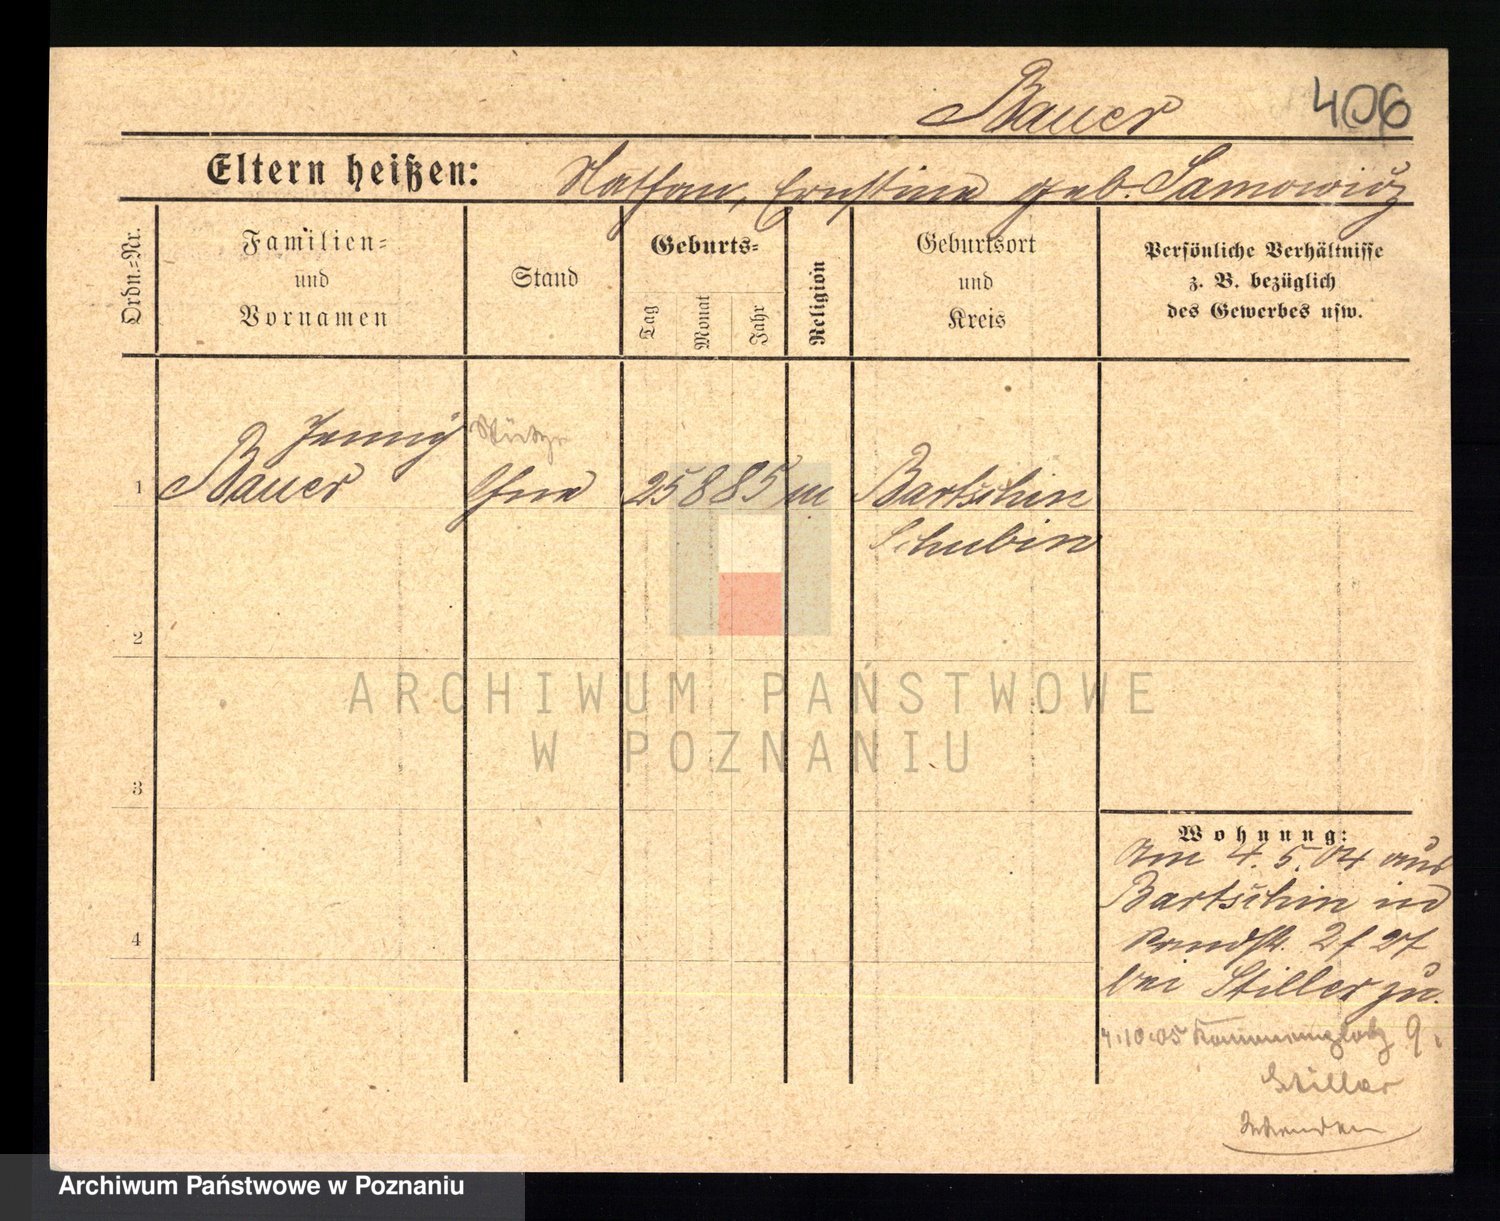 Bauer
406
Eltern heißen: Nathan, Ernstine geb. Samowicz
Ordn.-Nr.
Familien-
und
Vornamen
Stand
Geburts-
Tag
Monat
Jahr
Religion
Geburtsort
und
Kreis
Persönliche Verhältnisse
z. B. bezüglich
des Gewerbes usw.
Jenny Stütze
1 Bauer Ohne 25 8 85 m Bartschin
Schubin
2
3
4
Wohnung:
Am 4.5.04 aus
Bartschin in
bei Stiller zu.
4.10.05 9.
Stiller
ARCHIWUM PAŃSTWOWE
W POZNANIU
Archiwum Państwowe w Poznaniu